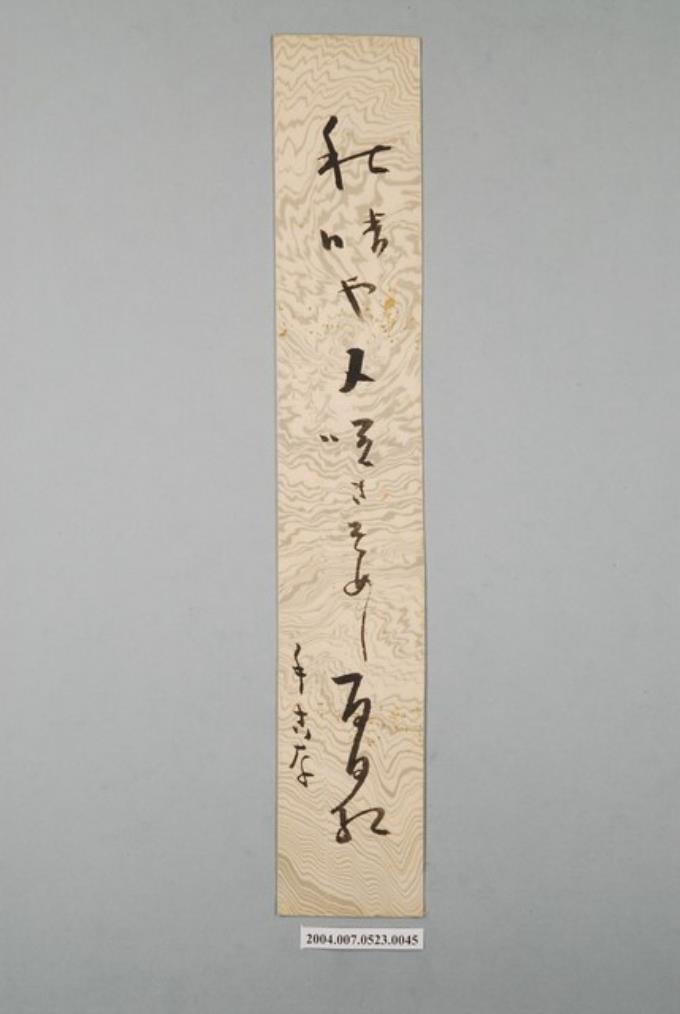 秋晴や又咲きそめし百日紅
2004.007.0523.0045